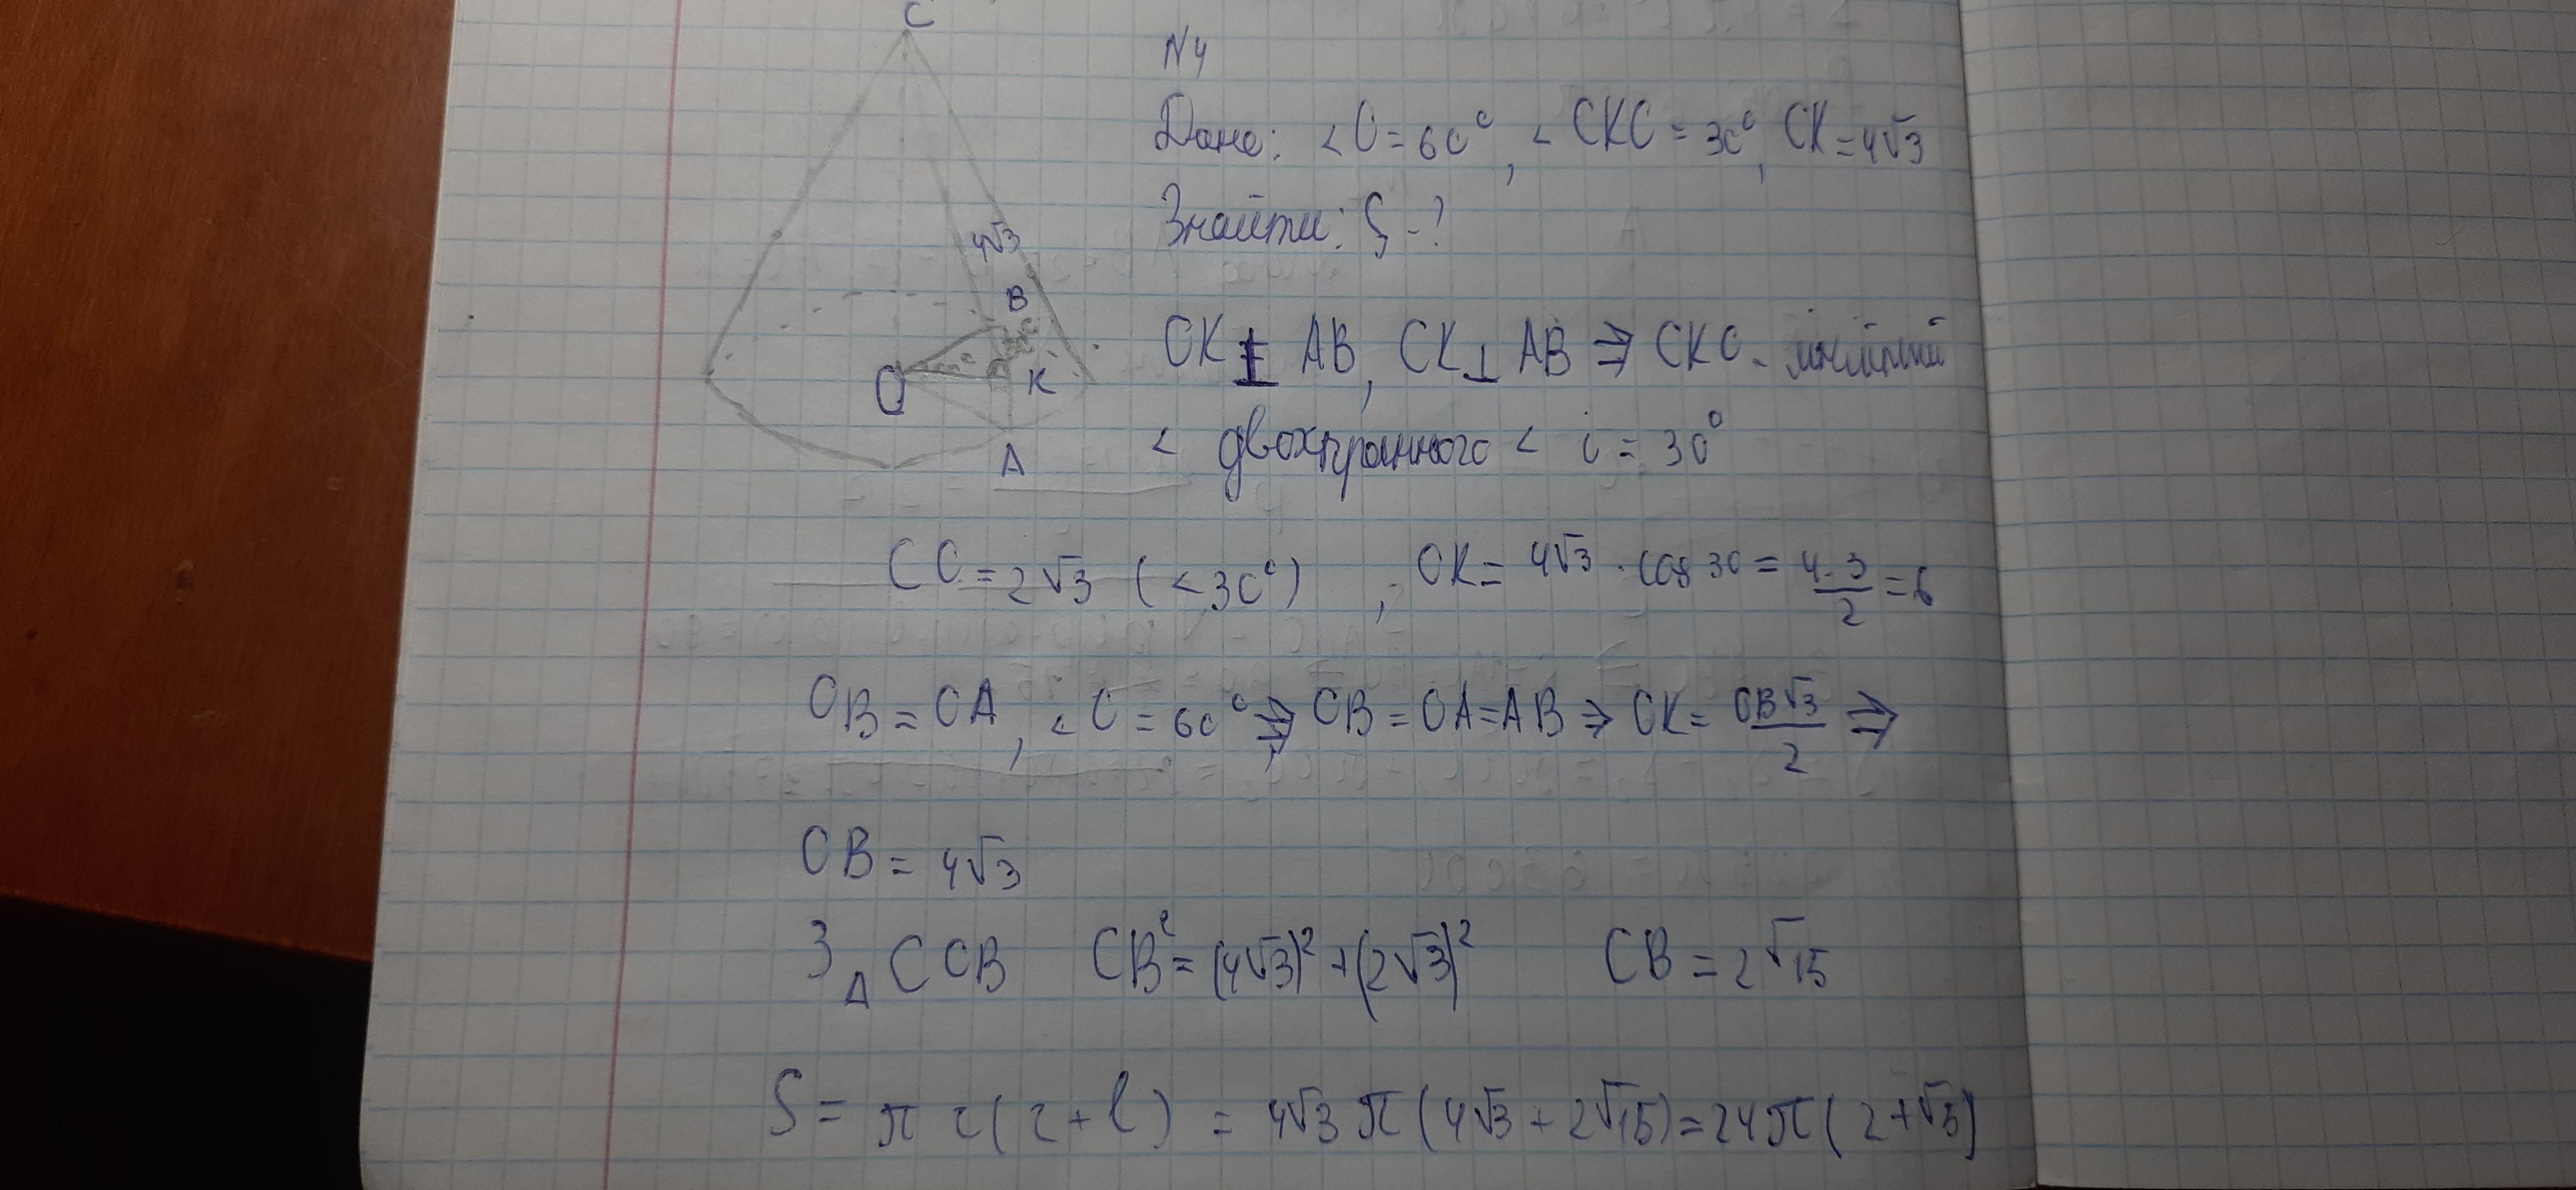 C
N4
Дано: <O = 60°, < CKO = 30°, CK = 4√3
Знайти: S - ?
4√3
B
O
K
A
OK ⊥ AB, CK ⊥ AB ⇒ CKO -
< двохгранного < і = 30°
CO = 2√3 (<30°), OK = 4√3 · cos 30 = 4·3/2 = 6
OB = OA, <O = 60° ⇒ OB = OA = AB ⇒ OK = OB√3/2 ⇒
OB = 4√3
З △ COB CB² = (4√3)² + (2√3)² CB = 2√15
S = πr(r + l) = 4√3 π (4√3 + 2√15) = 24π(2+√5)